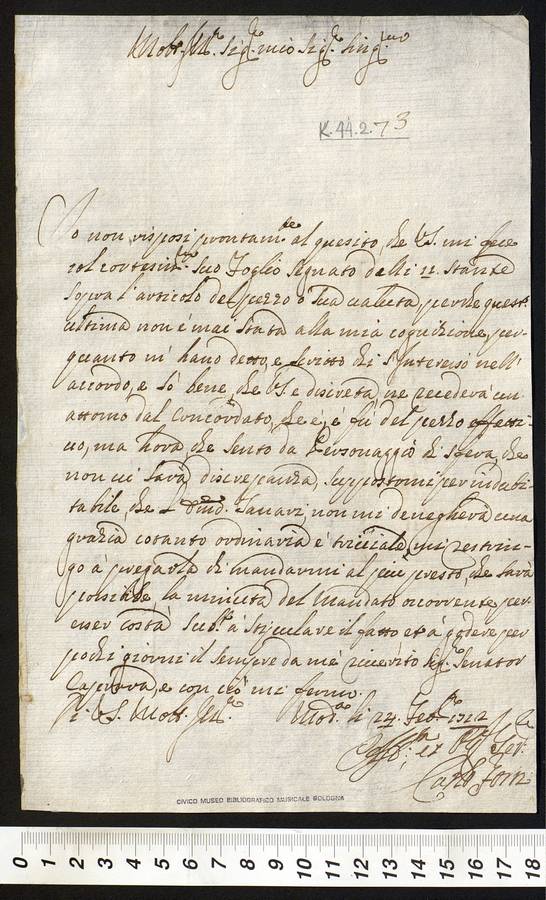 Molt. Ill. Sig.re mio Sig.re Sing.mo
K.44.2.73
Io non risposi prontam.te al quesito, che VS. mi fece
col cortesiss.mo Suo Foglio Segnato delli 11. Stante
Sopra l'articolo del pezzo o Sua valuta, perche quest'
ultima non è mai Stata alla mia cognizione, per
quanto m' hano detto, e scritto chi s'Interessò nell'
accordo, e Sò bene, che VS. è discreta, ne recederà un
attomo dal Concordato, che è, e fù del pezzo effetti-
vo, ma hora che Sento da Personaggio di Sfera, che
non vi Sarà discrepanza, suppostomi per indubi-
tabile, che il Sanari, non mi denegherà una
grazia cotanto ordinaria è triviale, mi restrin-
go à pregarla di mandarmi al più presto, che Sarà
possibile la minuta del Mandato occorrente per
esser costà Sub.o à Stipulare il fatto et à godere per
pochi giorni il Sempre da me riverito Sig.re Senator
Caprara, e con ciò mi fermo.
Di VS. Molt. Ill.re Mod.a li 24. Feb.o 1712
Aff.mo Ser.
Carlo
CIVICO MUSEO BIBLIOGRAFICO MUSICALE BOLOGNA
0 1 2 3 4 5 6 7 8 9 10 11 12 13 14 15 16 17 18